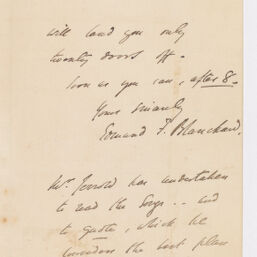 will land you only
twenty doors off.
Soon as you can, after 8.
Yours sincerely
Edmund F. Blanchard.
Mr. Jerrold has undertaken
to read the Songs -- and
to quote, which he
considers the best plan